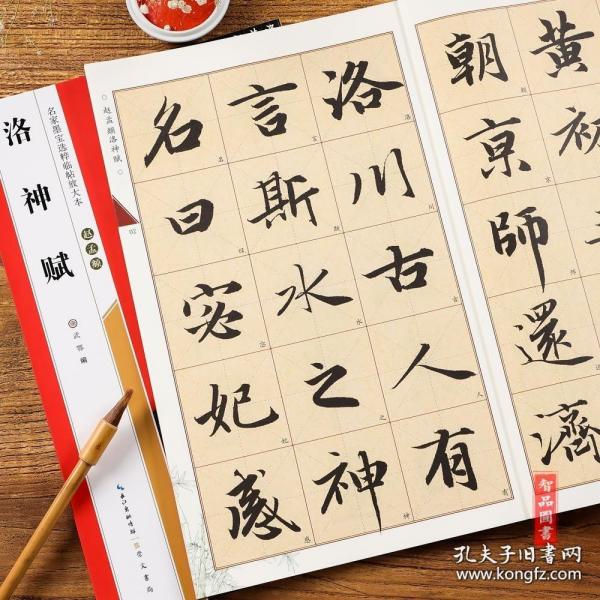 黄初
朝京師還濟
洛川古人有
言斯水之神
名曰宓妃感
赵孟頫洛神赋
02
名家墨宝选粹临帖放大本
赵孟頫
洛神赋
武鄂 编
崇文书局
智品圖書
孔夫子旧书网
www.kongfz.com